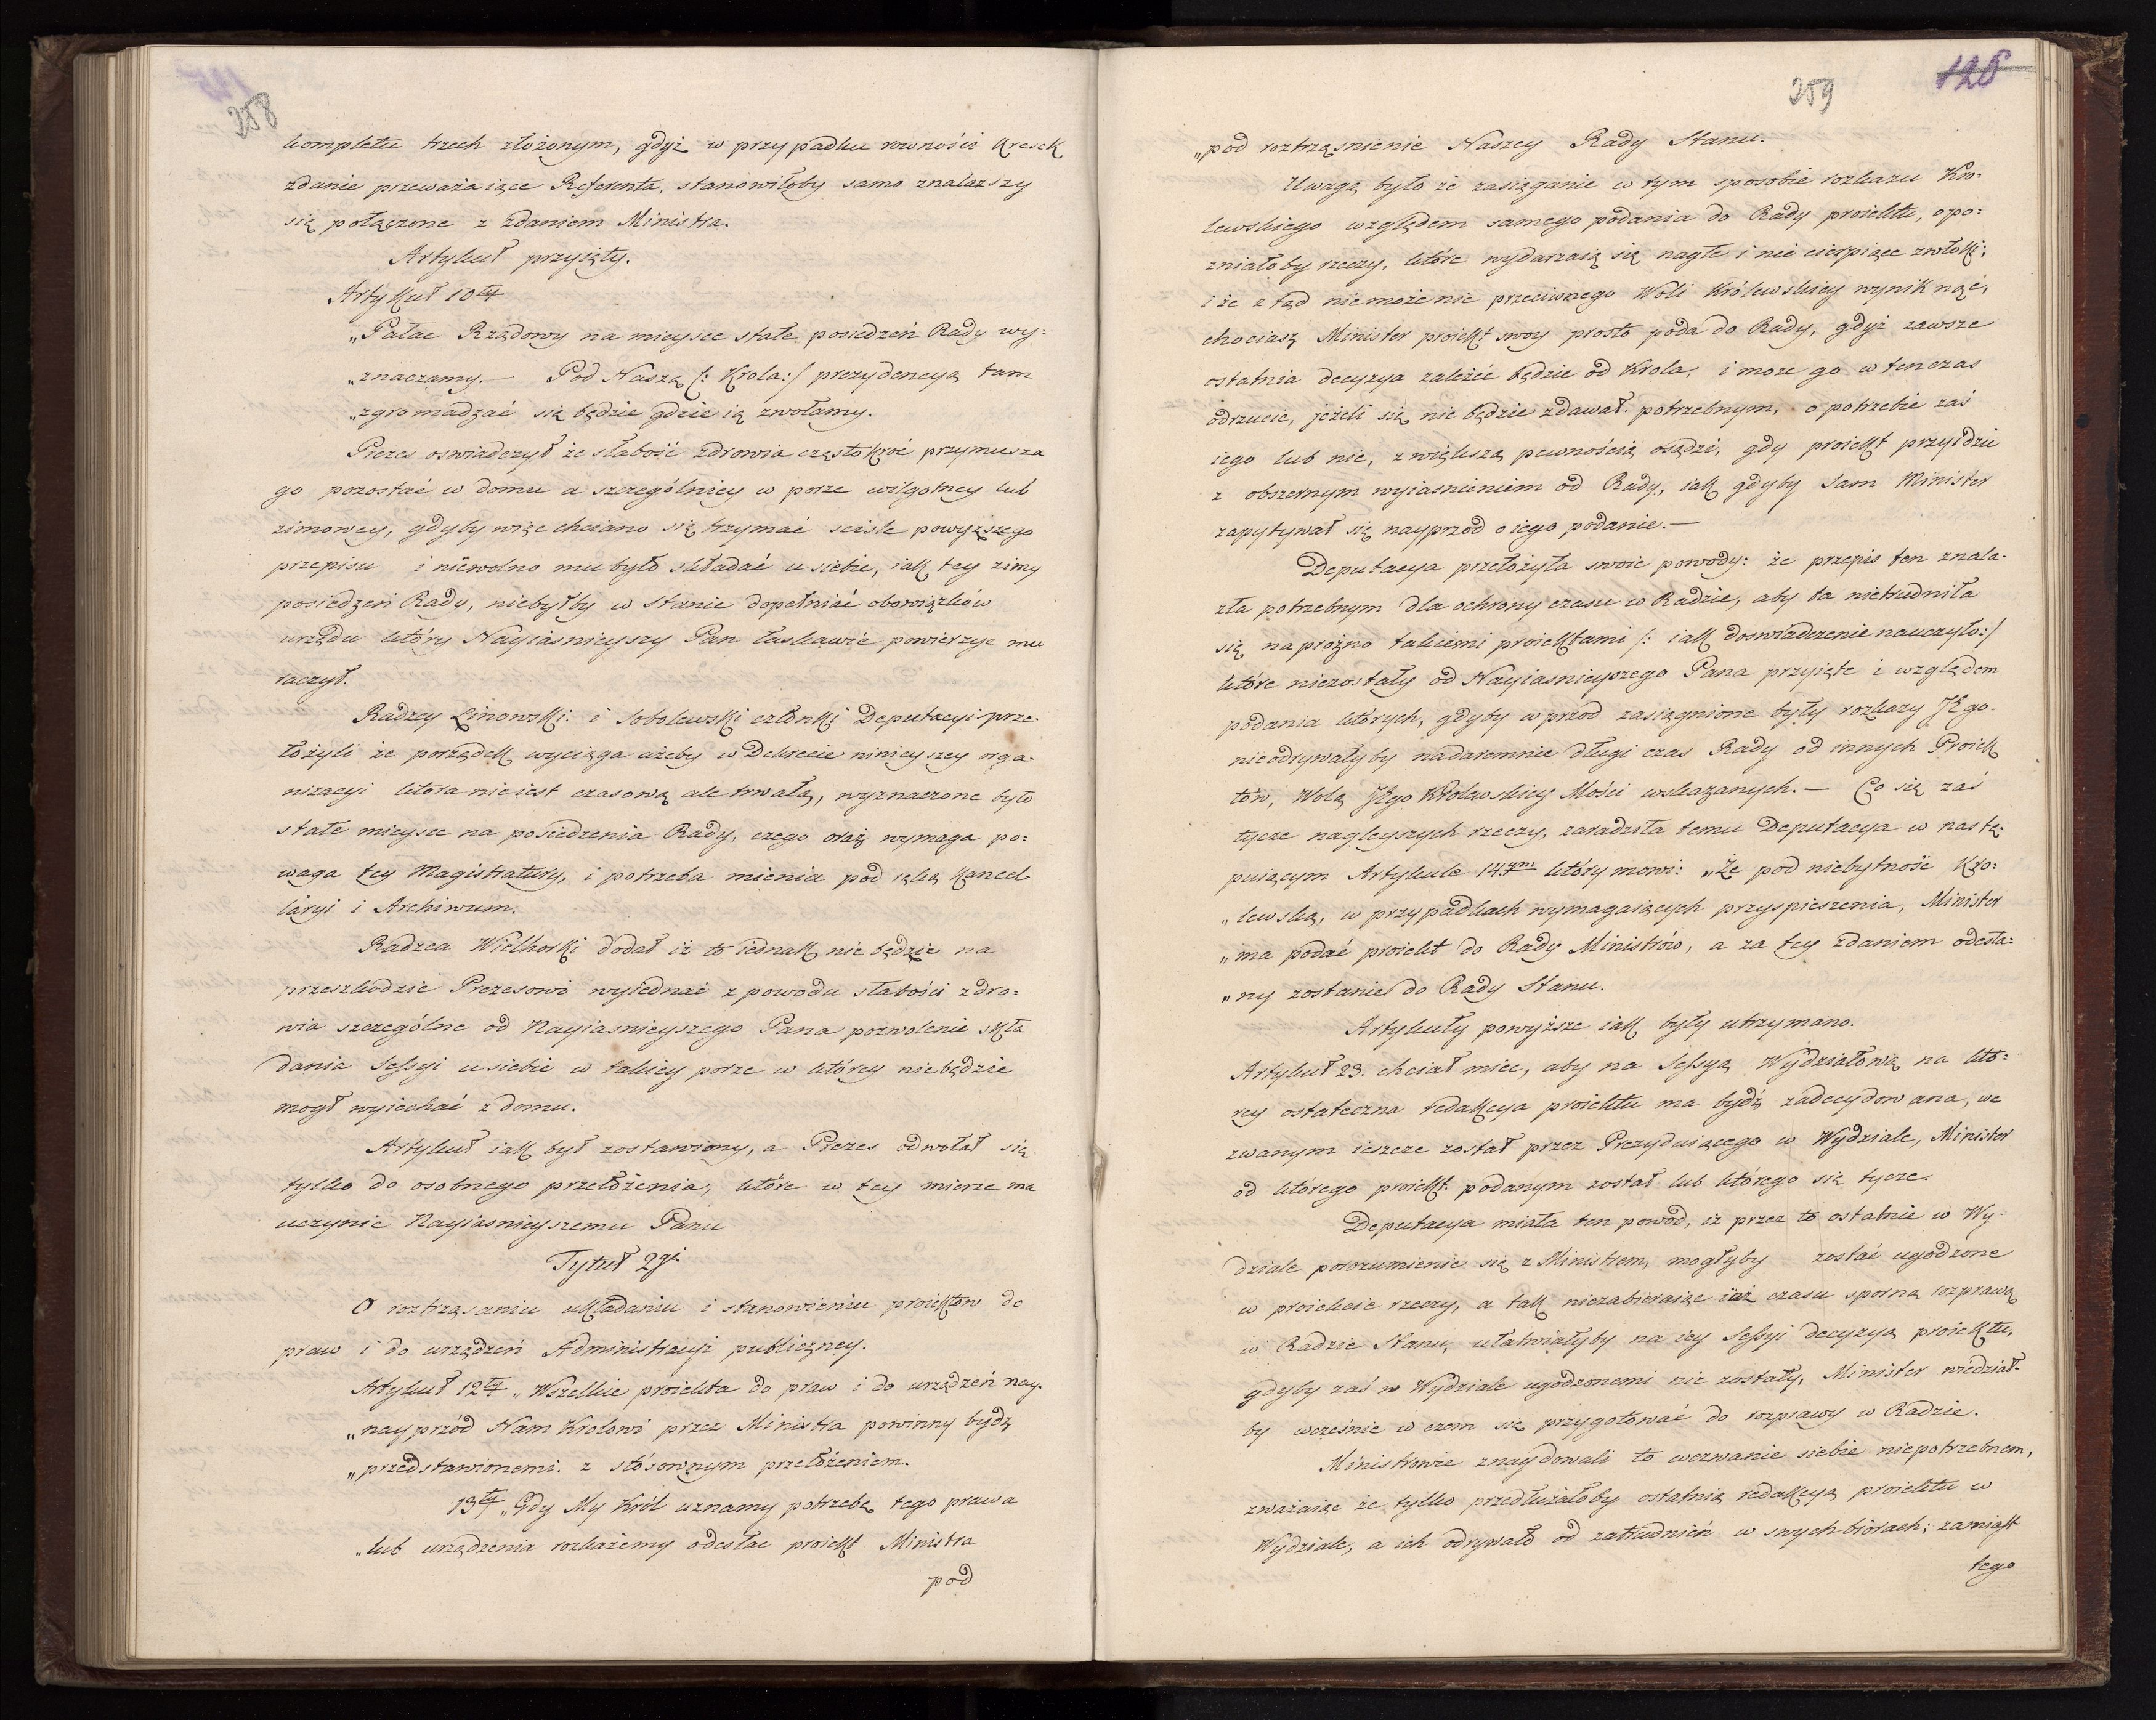 258
kompletu trzech złożonym, gdyż w przypadku rowności kresek
zdanie przeważaiące Referenta, stanowiłoby samo znalazszy
się połączone z zdaniem Ministra.
Artykuł przyięty.
Artykuł 10ty
„Pałac Rządowy na mieysce stałe posiedzeń Rady wy=
„znaczamy.— Pod Naszą /: Krola:/ prezydencyą tam
„zgromadzać się będzie gdzie ią zwołamy.
Prezes oswiadczył że słabość zdrowia częstokroć przymusza
go pozostać w domu a szczególniey w porze wilgotney lub
zimowey, gdyby więc chciano się trzymać scisle powyższego
przepisu i niewolno mu było składać u siebie, iak tey zimy
posiedzeń Rady, niebyłby w stanie dopełniać obowiązków
urzędu który Nayiasnieyszy Pan łaskawie powierzyc mu
raczył.
Radzcy Linowski i Sobolewski członki Deputacyi prze-
łożyli że porządek wyciąga ażeby w Dekrecie ninieyszey orga-
nizacyi która nie iest czasową ale trwałą, wyznaczone było
stałe mieysce na posiedzenia Rady, czego oraz wymaga po=
waga tey Magistratury, i potrzeba mienia pod ręką Kancel
laryi i Archiwum.
Radzca Wielhorski dodał iż to iednak nie będzie na
przeszkodzie Prezesowi wyiednać z powodu słabości zdro=
wia szczególne od Nayiasnieyszego Pana pozwolenie skła
dania Sessyi u siebie w takiey porze w którey niebędzie
mogł wyiechać z domu.
Artykuł iak był zostawiony, a Prezes odwołał się
tylko do osobnego przełożenia, które w tey mierze ma
uczynic Nayiasnieyszemu Panu
Tytuł 2gi
O roztrząsaniu układaniu i stanowieniu proiektow do
praw i do urządzeń Administracyi publiczney.
Artykuł 12ty „Wszelkie proiekta do praw i do urządzeń nay-
„nayprzód Nam Krolowi przez Ministra powinny bydz
„przedstawionemi z stósownym przełożeniem.
13ty „Gdy My Król uznamy potrzebę tego prawa
„lub urządzenia rozkażemy odesłac proiekt Ministra
pod
259
128
„pod roztrząsnienie Naszey Rady Stanu.
Uwagą było że zasięganie w tym sposobie rozkazu Kro=
lewskiego względem samego podania do Rady proiektu, opo=
zniałoby rzeczy, które wydarzaią się nagłe i nie cierpiące zwłoki;
i że z tąd niemoże nic przeciwnego Woli Królewskiey wyniknąć,
chociasz Minister proiekt swoy prosto poda do Rady, gdyż zawsze
ostatnia decyzya zależić będzie od Krola, i moze go w tenczas
odrzucic, jeżeli się nie będzie zdawał potrzebnym, o potrzebie zaś
iego lub nie, z większą pewnością osądzi, gdy proiekt przyidzie
z obszernym wyiasnieniem od Rady, iak gdyby sam Minister
zapytywał się nayprzod o iego podanie.—
Deputacya przełożyła swoie powody: że przepis ten znala-
zła potrzebnym dla ochrony czasu w Radzie, aby ta nietrudniła
się naprożno takiemi proiektami /: iak doswiadczenie nauczyło:/
które niezostały od Nayiasnieyszego Pana przyięte i względem
podania których, gdyby w przod zasięgnione były rozkazy JEgo-
nieodrywałyby nadaremnie długi czas Rady od innych Proiek
tów, Wolą JEgo Krolewskiey Mości wskazanych.— Co się zaś
tycze nagleyszych rzeczy, zaradziła temu Deputacya w nastę=
puiącym Artykule 14ym który mowi: „Że pod niebytność Kro=
„lewską, w przypadkach wymagaiących przyspieszenia, Minister
„ma podać proiekt do Rady Ministrów, a za tey zdaniem odesła=
„ny zostanie do Rady Stanu.
Artykuły powyższe iak były utrzymano.
Artykuł 23. chciał miec, aby na Sessyą Wydziałową na któ=
rey ostateczna redakcya proiektu ma bydź zadecydowana, we
zwanym ieszcze został przez Prezyduiącego w Wydziale, Minister
od którego proiekt podanym został lub którego się tycze.
Deputacya miała ten powod, iz przez to ostatnie w Wy-
dziale porozumienie się z Ministrem, mogłyby zostać ugodzone
w proiekcie rzeczy, a tak niezabieraiąc iuż czasu sporną rozprawą
w Radzie Stanu, ułatwiałyby na iey Sessyi decyzyą proiektu,
gdyby zaś w Wydziale ugodzonemi nie zostały, Minister wiedział-
by wcześnie w czem się przygotować do rozprawy w Radzie.
Ministrowie znaydowali to wezwanie siebie niepotrzebnem,
zważaiąc że tylko przedłużałoby ostatnią redakcyą proiektu w
Wydziale, a ich odrywało od zatrudnień w swych biorach; zamiast
tego